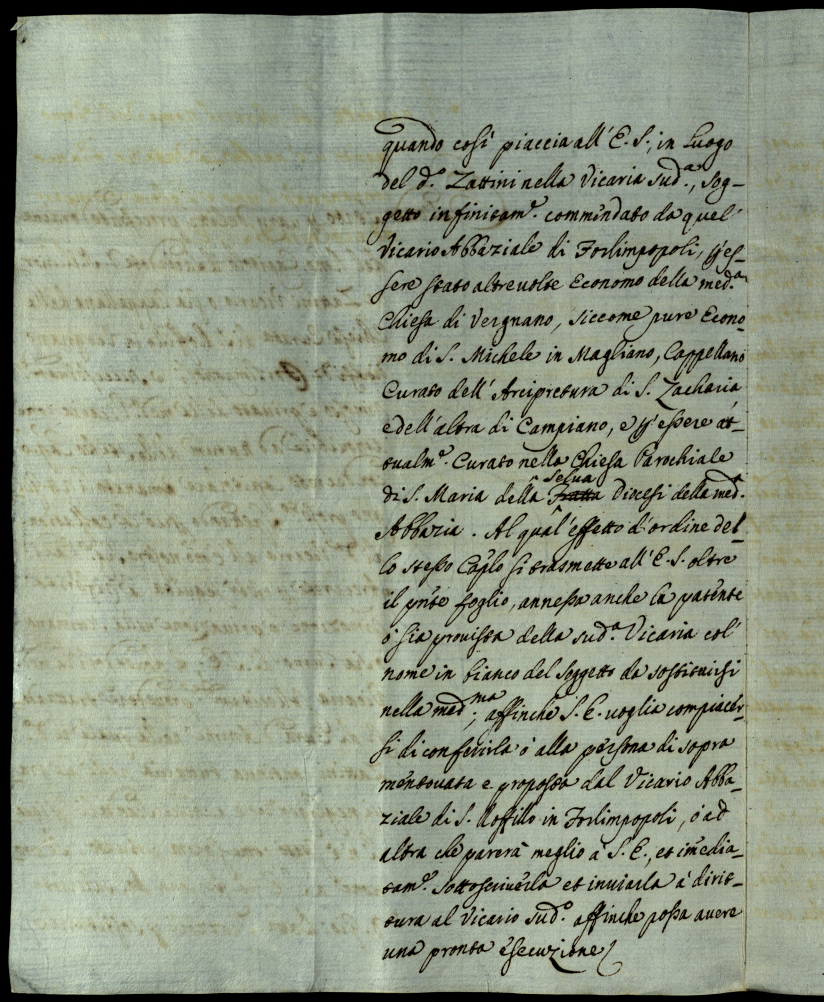 quando così piaccia all' E. S., in Luogo
del d.º Zattini nella Vicaria sud.ª, sog-
getto infinitam.e commendato da quel
Vicario Abbaziale di Forlimpopoli, p es-
sere stato altrevolte Economo della med.ª
Chiesa di Vergnano, siccome pure Econo-
mo di S. Michele in Magliano, Cappellano
Curato dell' Arcipretura di S. Zacharia
e dell' altra di Campiano, e p essere at-
tualm.e Curato nella Chiesa Parochiale
Selva
di S. Maria della Fratta Diocesi della med.ª
Abbazia. Al qual' effetto d'ordine del-
lo stesso Caplo si trasmette all' E. S. oltre
il pnte foglio, annessa anche la patente
ò sia provista della sud.ª Vicaria col'
nome in bianco del Soggetto da sostituirsi
nella med.ma; affinchè S. E. voglia compiacer-
si di conferirla ò alla persona di sopra
mentovata e proposta dal Vicario Abba-
ziale di S. Roffillo in Forlimpopoli, ò ad
altra che parerà meglio à S. E., et imedia-
tam.e sottoscriverla et inviarla à dirit-
tura al Vicario sud.º affinche possa avere
una pronta esecuzione